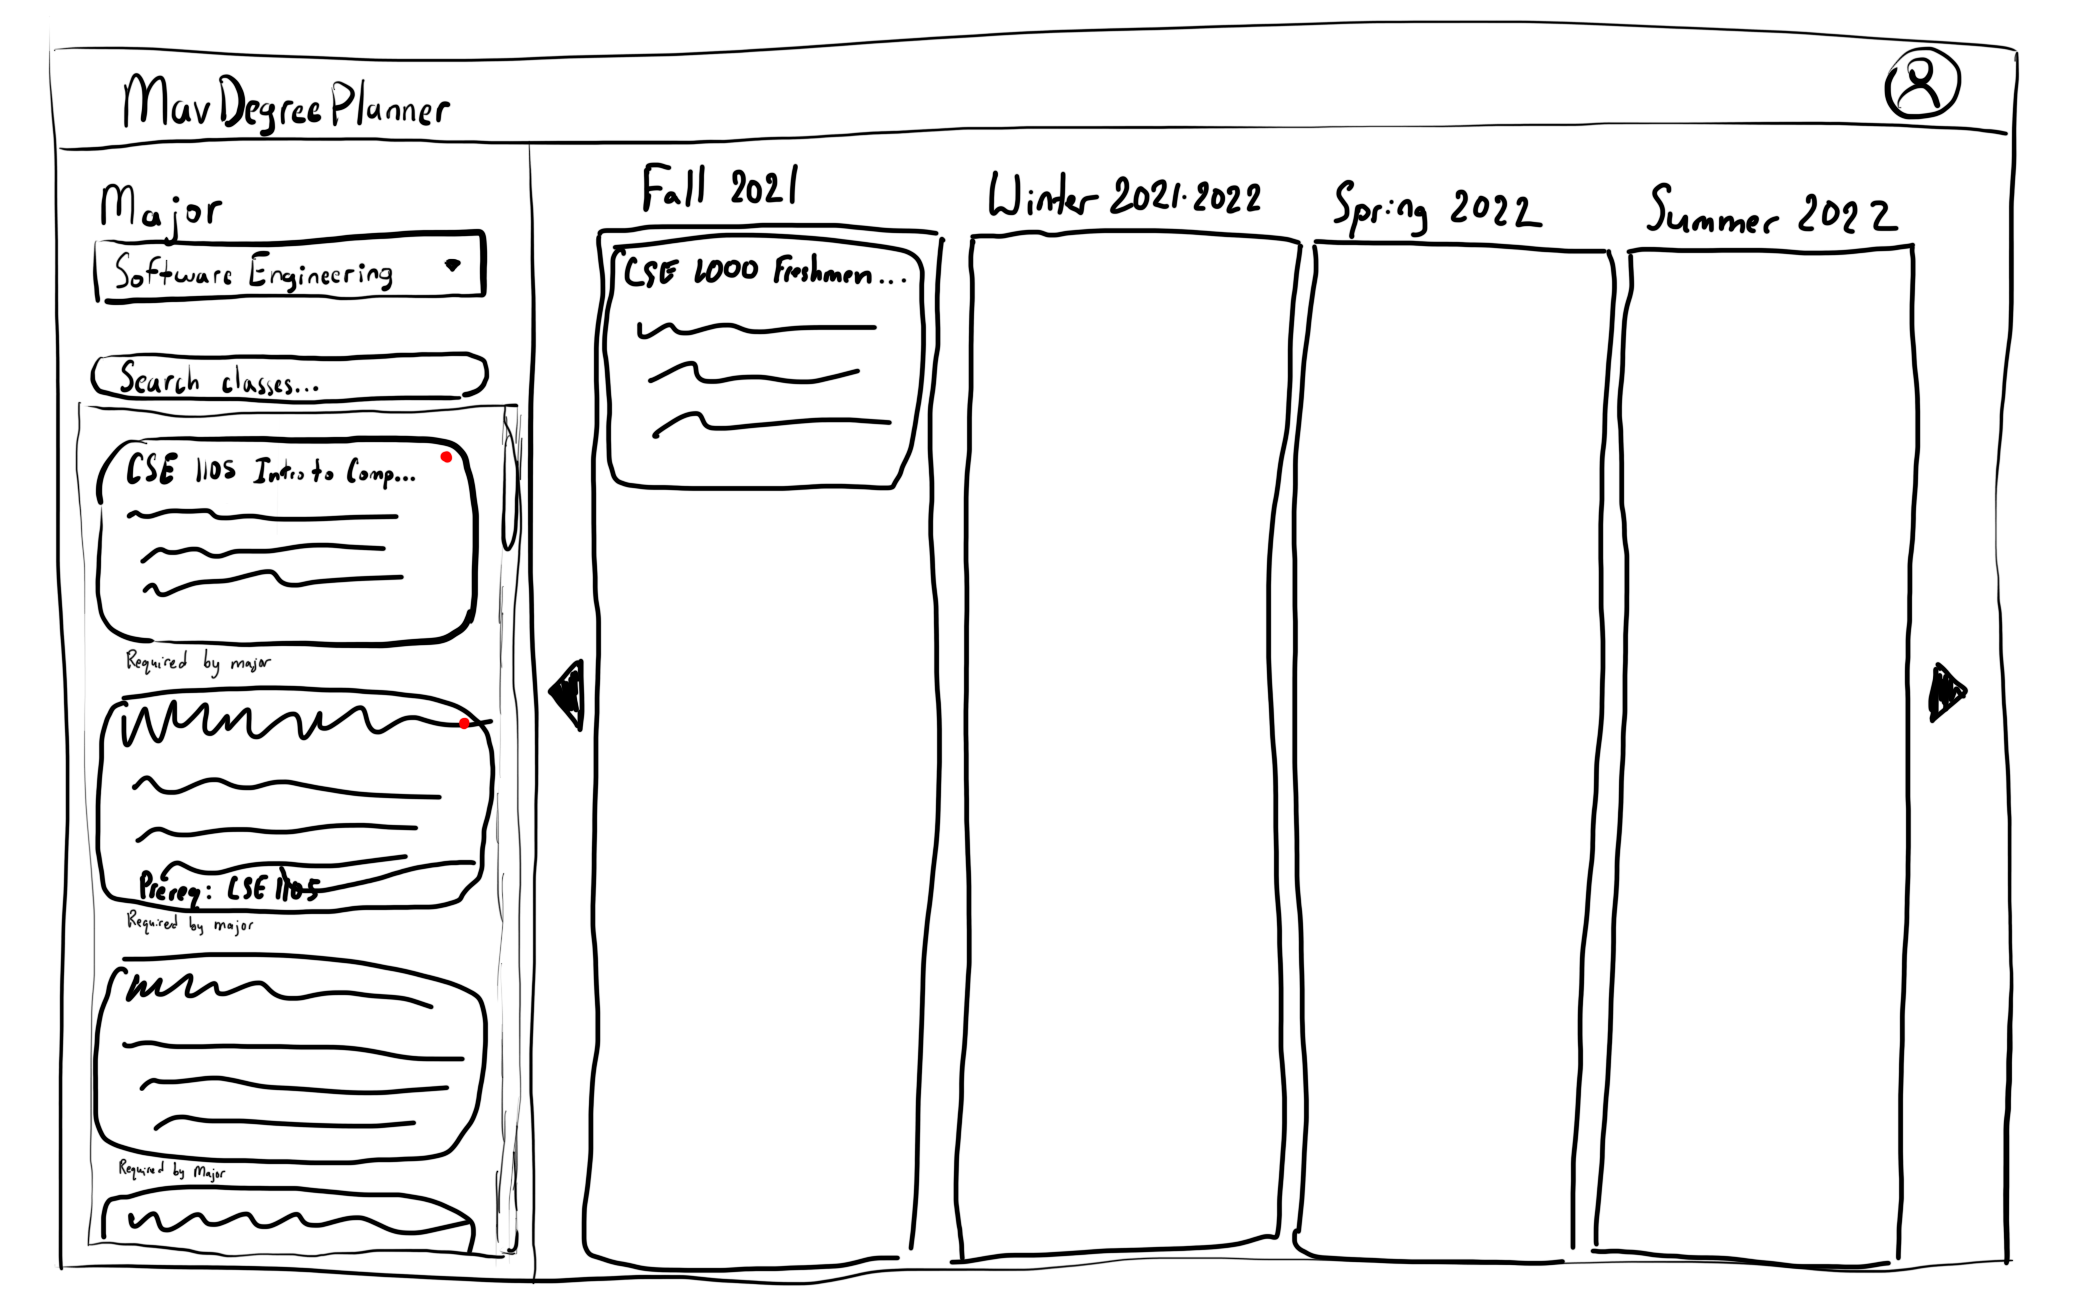 MavDegreePlanner
Major
Software Engineering
Search classes...
CSE 1105 Intro to Comp...
Required by major
Prereq: CSE 1105
Required by major
Required by Major
Fall 2021
CSE 1000 Freshmen...
Winter 2021-2022
Spring 2022
Summer 2022